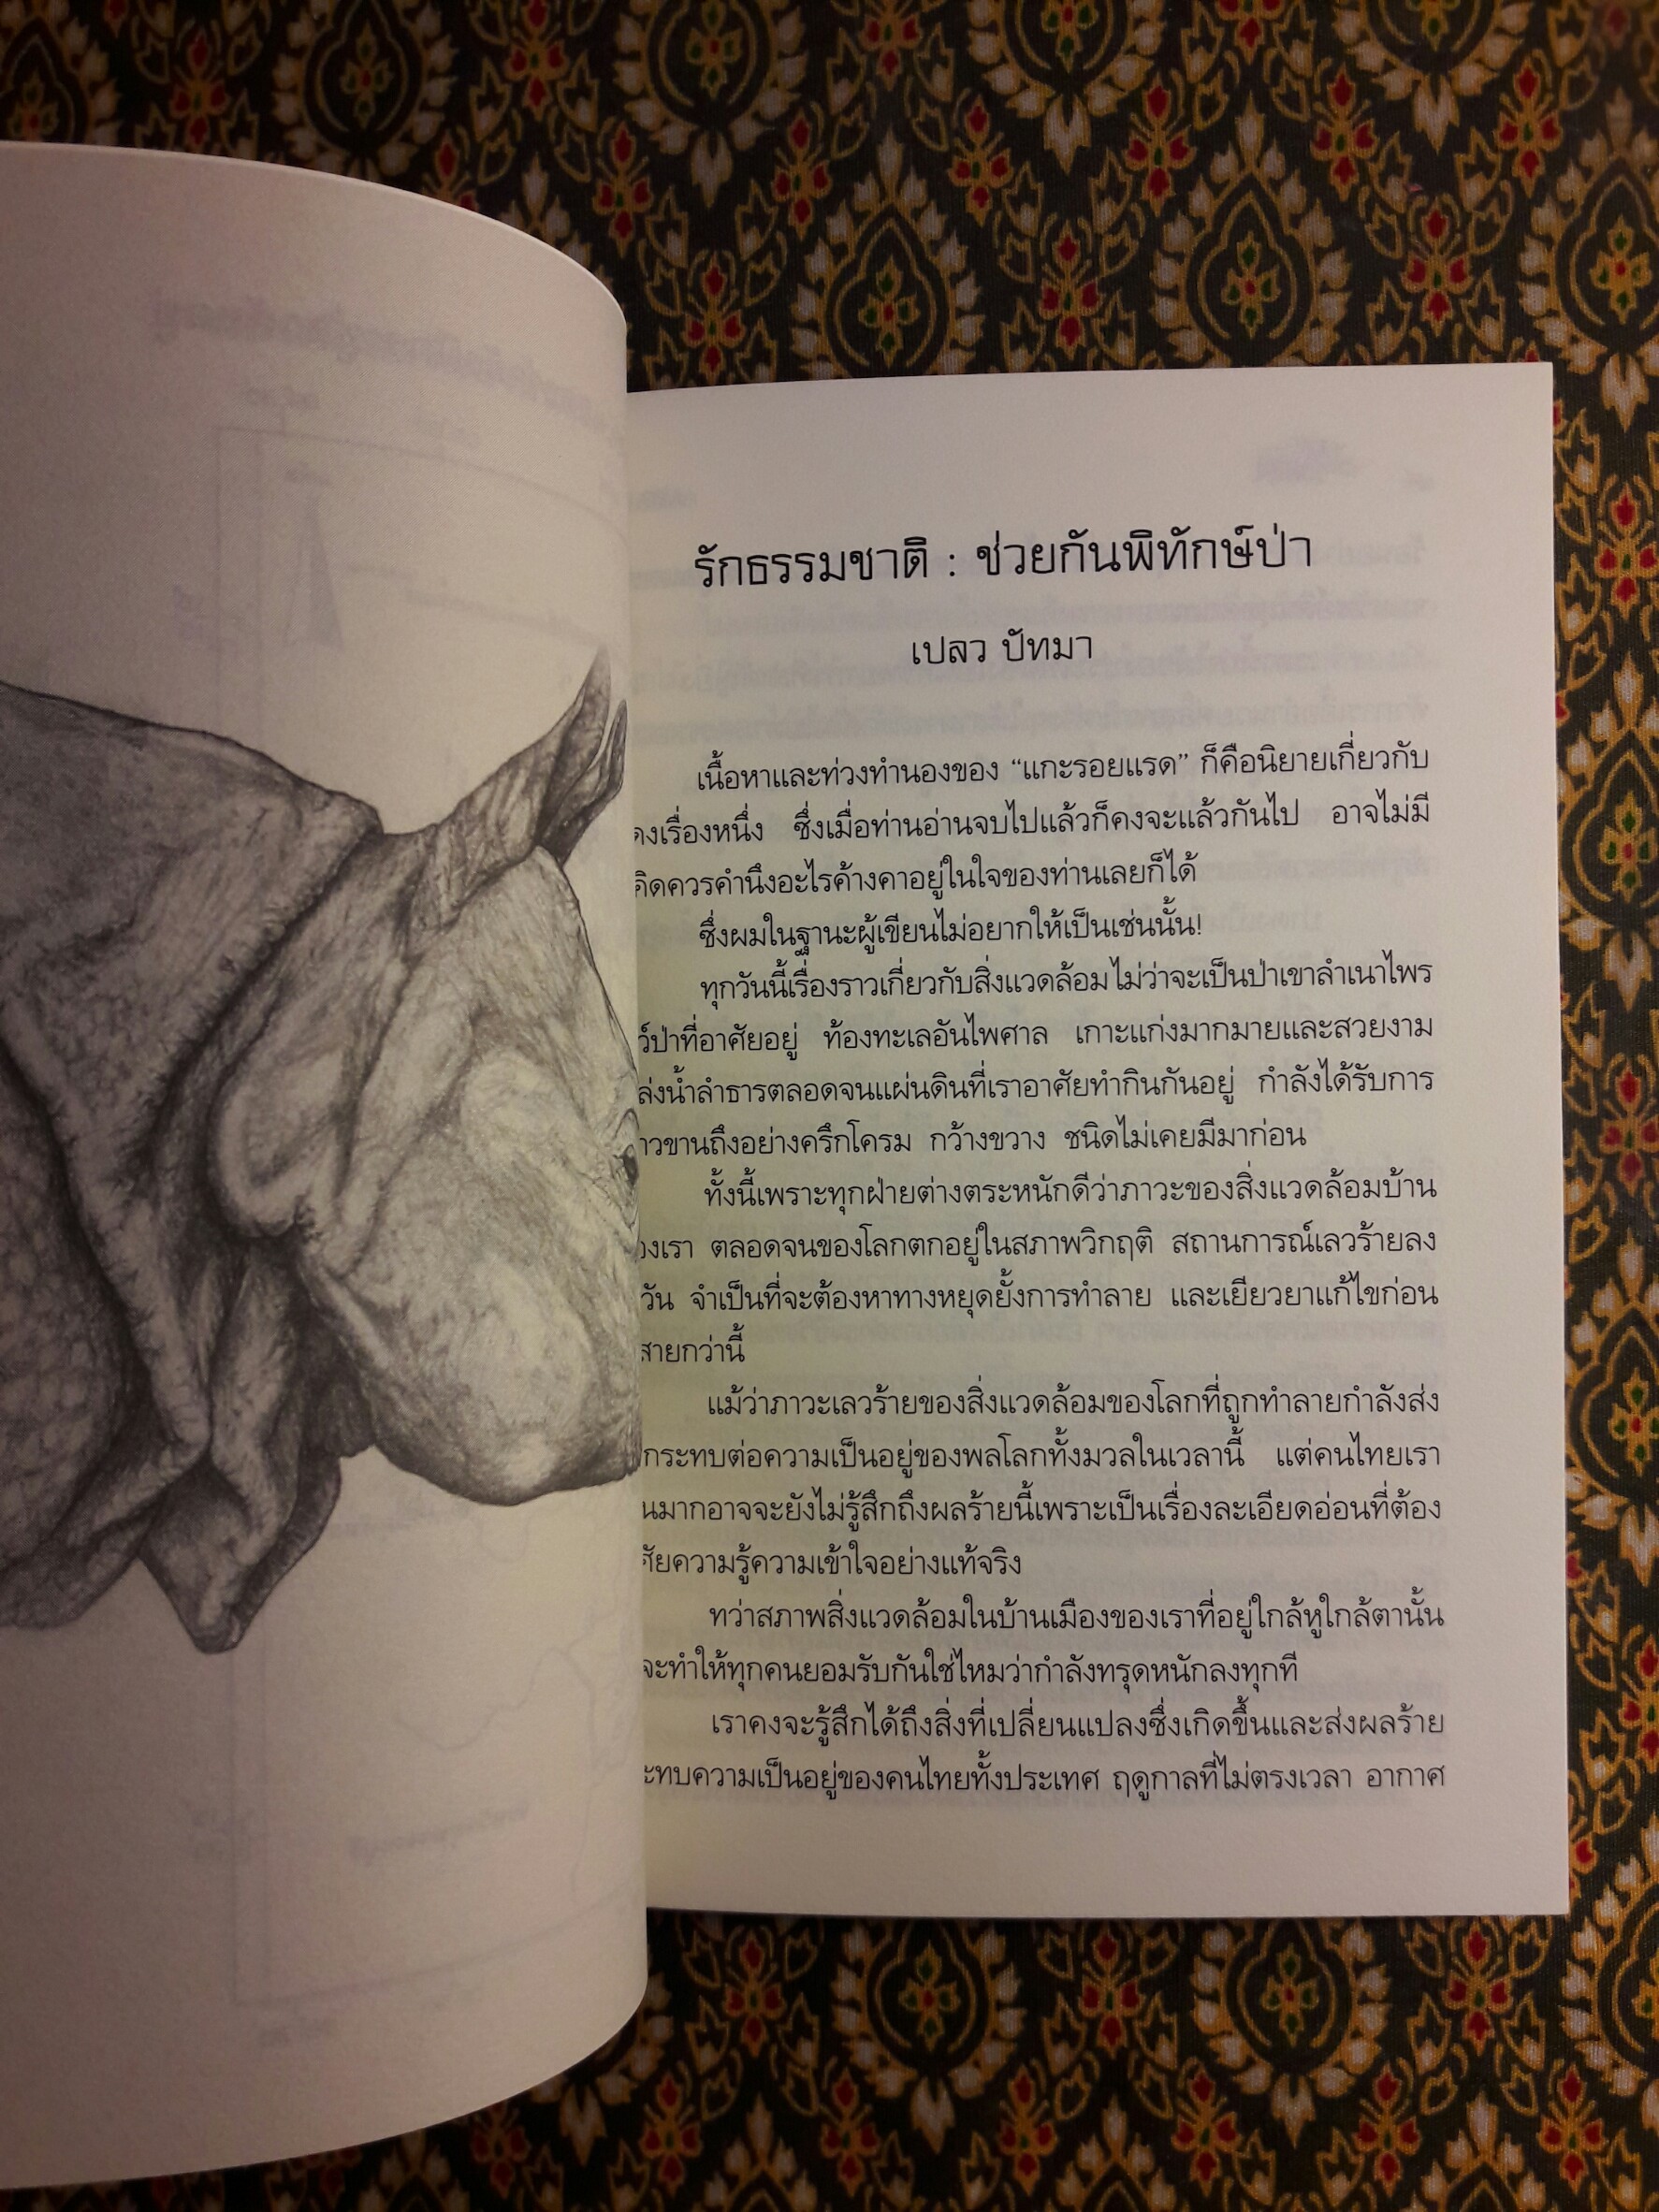 รักธรรมชาติ : ช่วยกันพิทักษ์ป่า
เปลว ปัทมา
เนื้อหาและท่วงทำนองของ “แกะรอยแรด” ก็คือนิยายเกี่ยวกับ
เรื่องหนึ่ง ซึ่งเมื่อท่านอ่านจบไปแล้วก็คงจะแล้วกันไป อาจไม่มี
คิดควรคำนึงอะไรค้างคาอยู่ในใจของท่านเลยก็ได้
ซึ่งผมในฐานะผู้เขียนไม่อยากให้เป็นเช่นนั้น!
ทุกวันนี้เรื่องราวเกี่ยวกับสิ่งแวดล้อมไม่ว่าจะเป็นป่าเขาลำเนาไพร
ว์ป่าที่อาศัยอยู่ ท้องทะเลอันไพศาล เกาะแก่งมากมายและสวยงาม
ล่งน้ำลำธารตลอดจนแผ่นดินที่เราอาศัยทำกินกันอยู่ กำลังได้รับการ
าวขานถึงอย่างครึกโครม กว้างขวาง ชนิดไม่เคยมีมาก่อน
ทั้งนี้เพราะทุกฝ่ายต่างตระหนักดีว่าภาวะของสิ่งแวดล้อมบ้าน
งเรา ตลอดจนของโลกตกอยู่ในสภาพวิกฤติ สถานการณ์เลวร้ายลง
วัน จำเป็นที่จะต้องหาทางหยุดยั้งการทำลาย และเยียวยาแก้ไขก่อน
สายกว่านี้
แม้ว่าภาวะเลวร้ายของสิ่งแวดล้อมของโลกที่ถูกทำลายกำลังส่ง
กระทบต่อความเป็นอยู่ของพลโลกทั้งมวลในเวลานี้ แต่คนไทยเรา
นมากอาจจะยังไม่รู้สึกถึงผลร้ายนี้เพราะเป็นเรื่องละเอียดอ่อนที่ต้อง
ศัยความรู้ความเข้าใจอย่างแท้จริง
ทว่าสภาพสิ่งแวดล้อมในบ้านเมืองของเราที่อยู่ใกล้หูใกล้ตานั้น
จะทำให้ทุกคนยอมรับกันใช่ไหมว่ากำลังทรุดหนักลงทุกที
เราคงจะรู้สึกได้ถึงสิ่งที่เปลี่ยนแปลงซึ่งเกิดขึ้นและส่งผลร้าย
ะทบความเป็นอยู่ของคนไทยทั้งประเทศ ฤดูกาลที่ไม่ตรงเวลา อากาศ